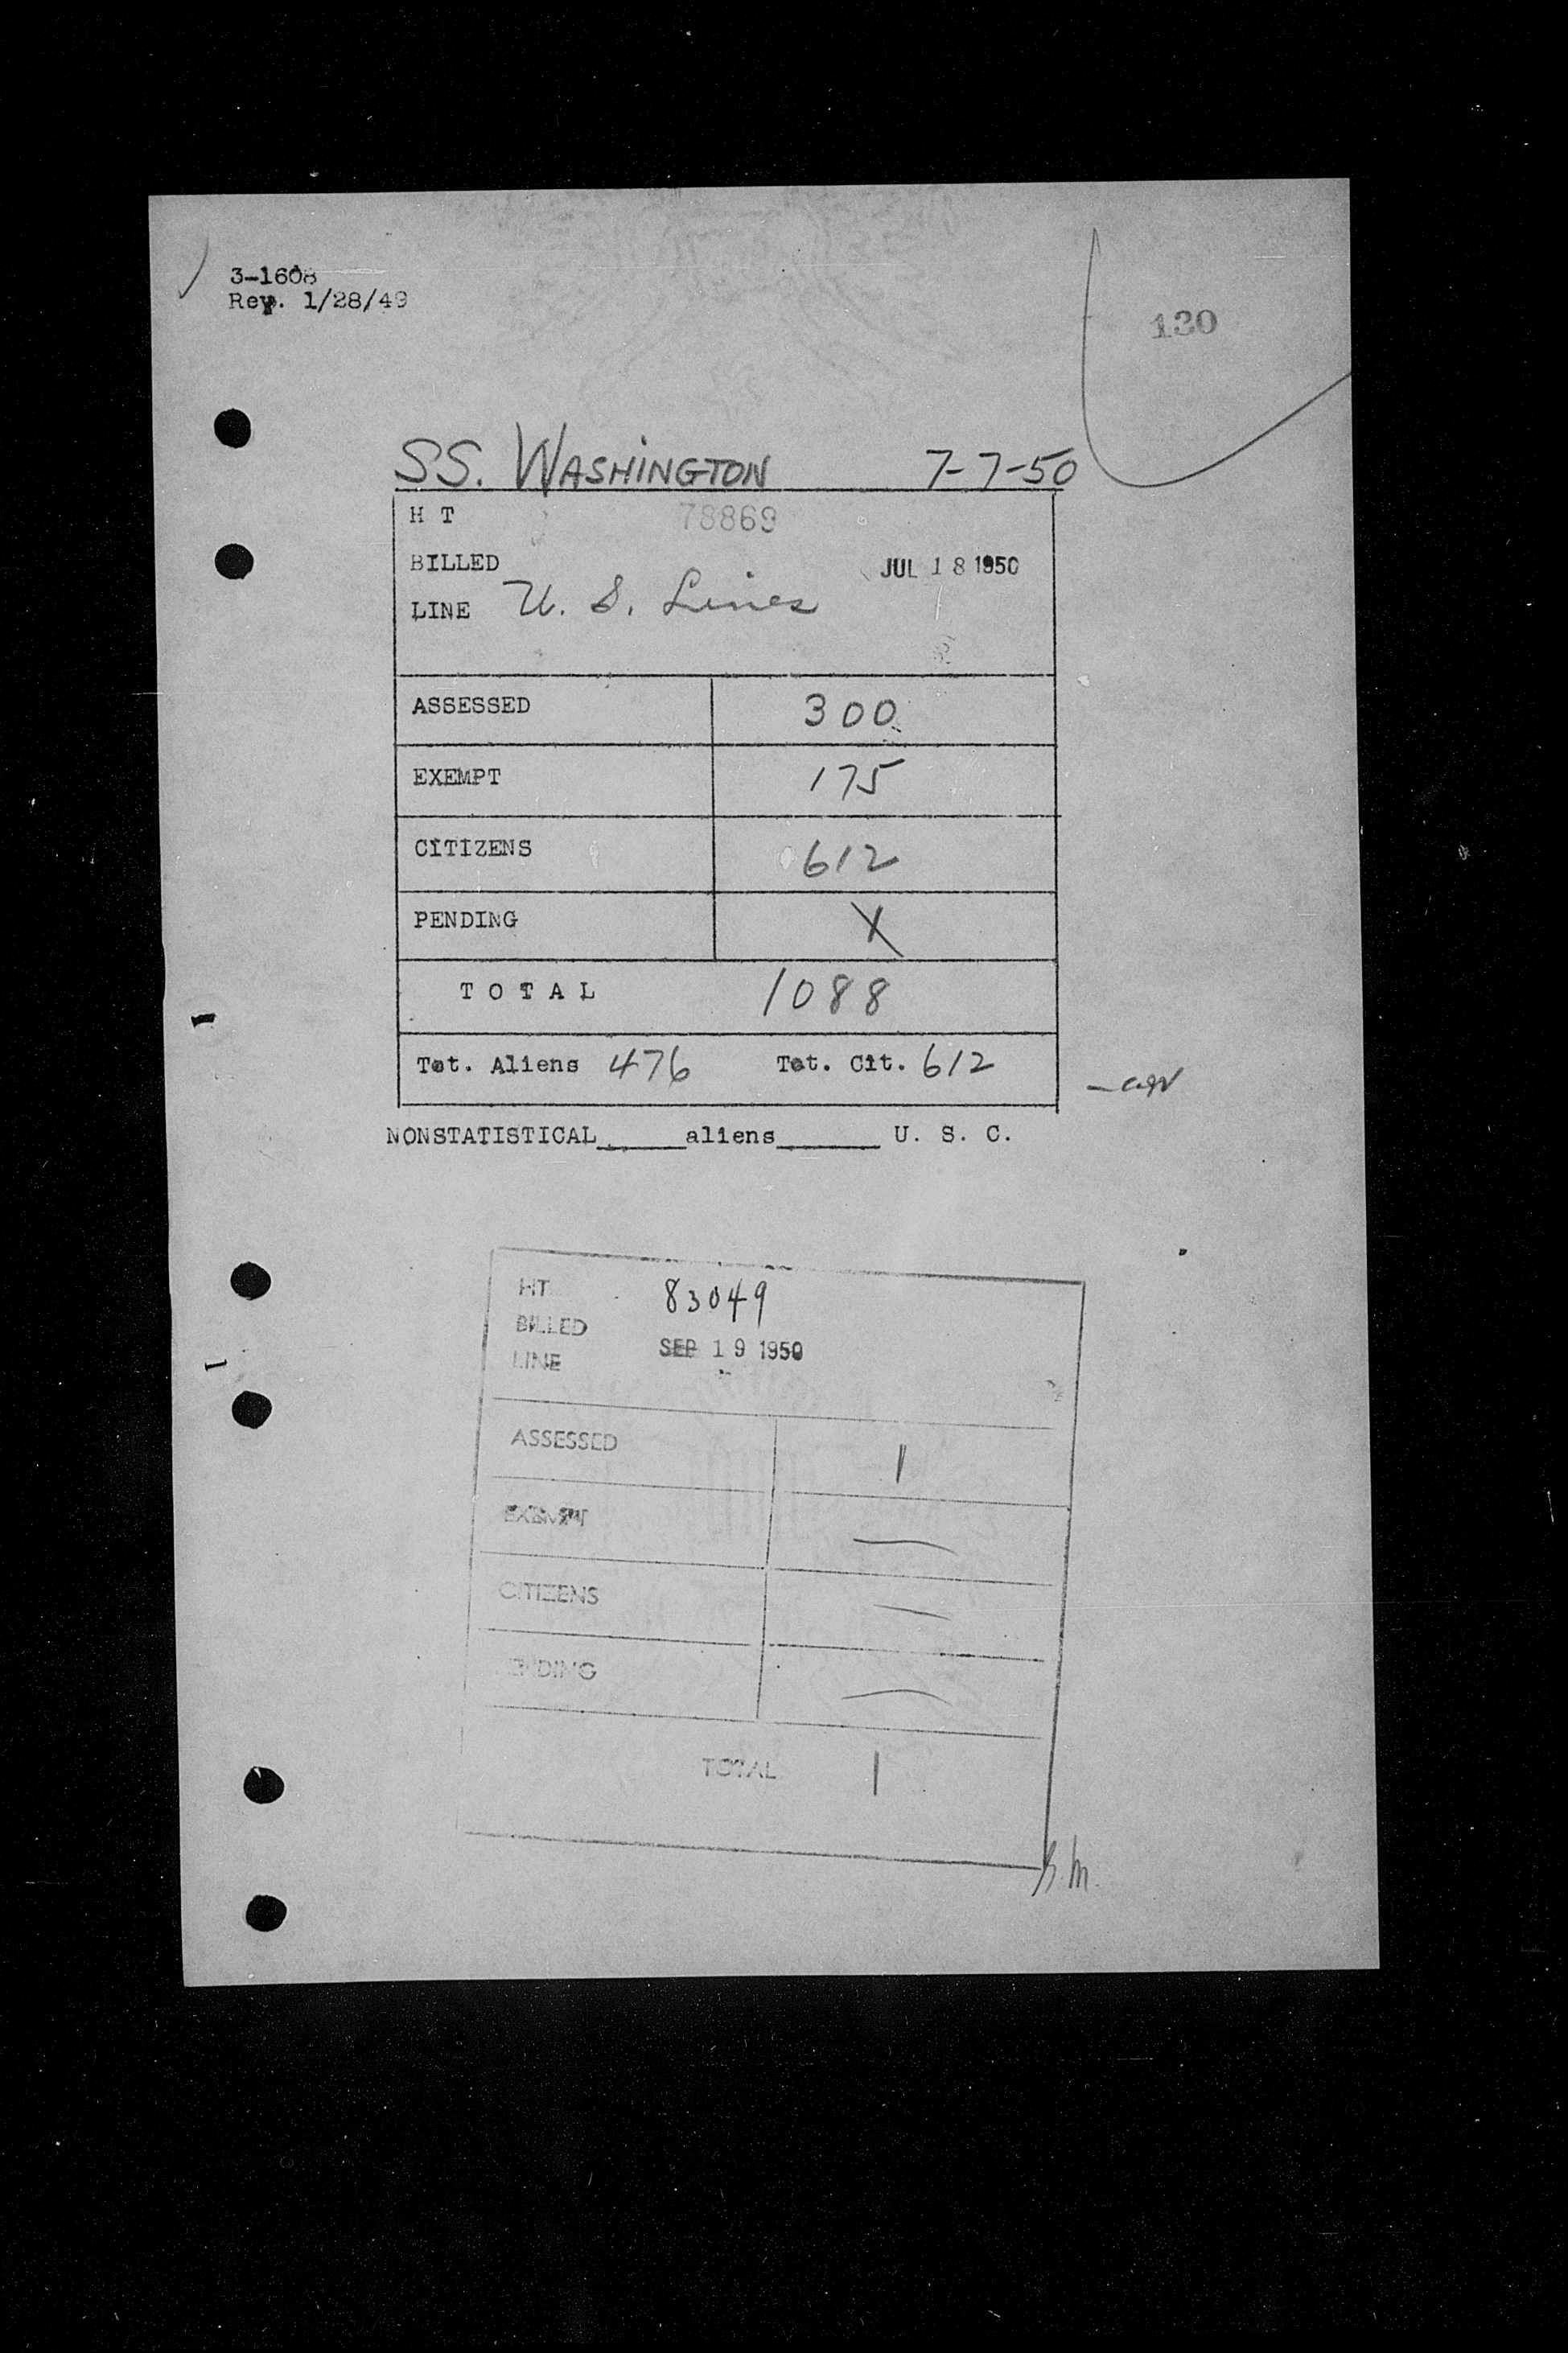 3-1608
Rev. 1/28/49
130
SS. WASHINGTON 7-7-50
H T 78869
BILLED JUL 18 1950
LINE U. S. Lines
ASSESSED 300
EXEMPT 175
CITIZENS 612
PENDING X
TOTAL 1088
Tot. Aliens 476 Tot. Cit. 612
NONSTATISTICAL_____aliens______ U. S. C.
HT 83049
BILLED
LINE SEP 19 1950
ASSESSED 1
EXEMPT —
CITIZENS —
PENDING —
TOTAL 1